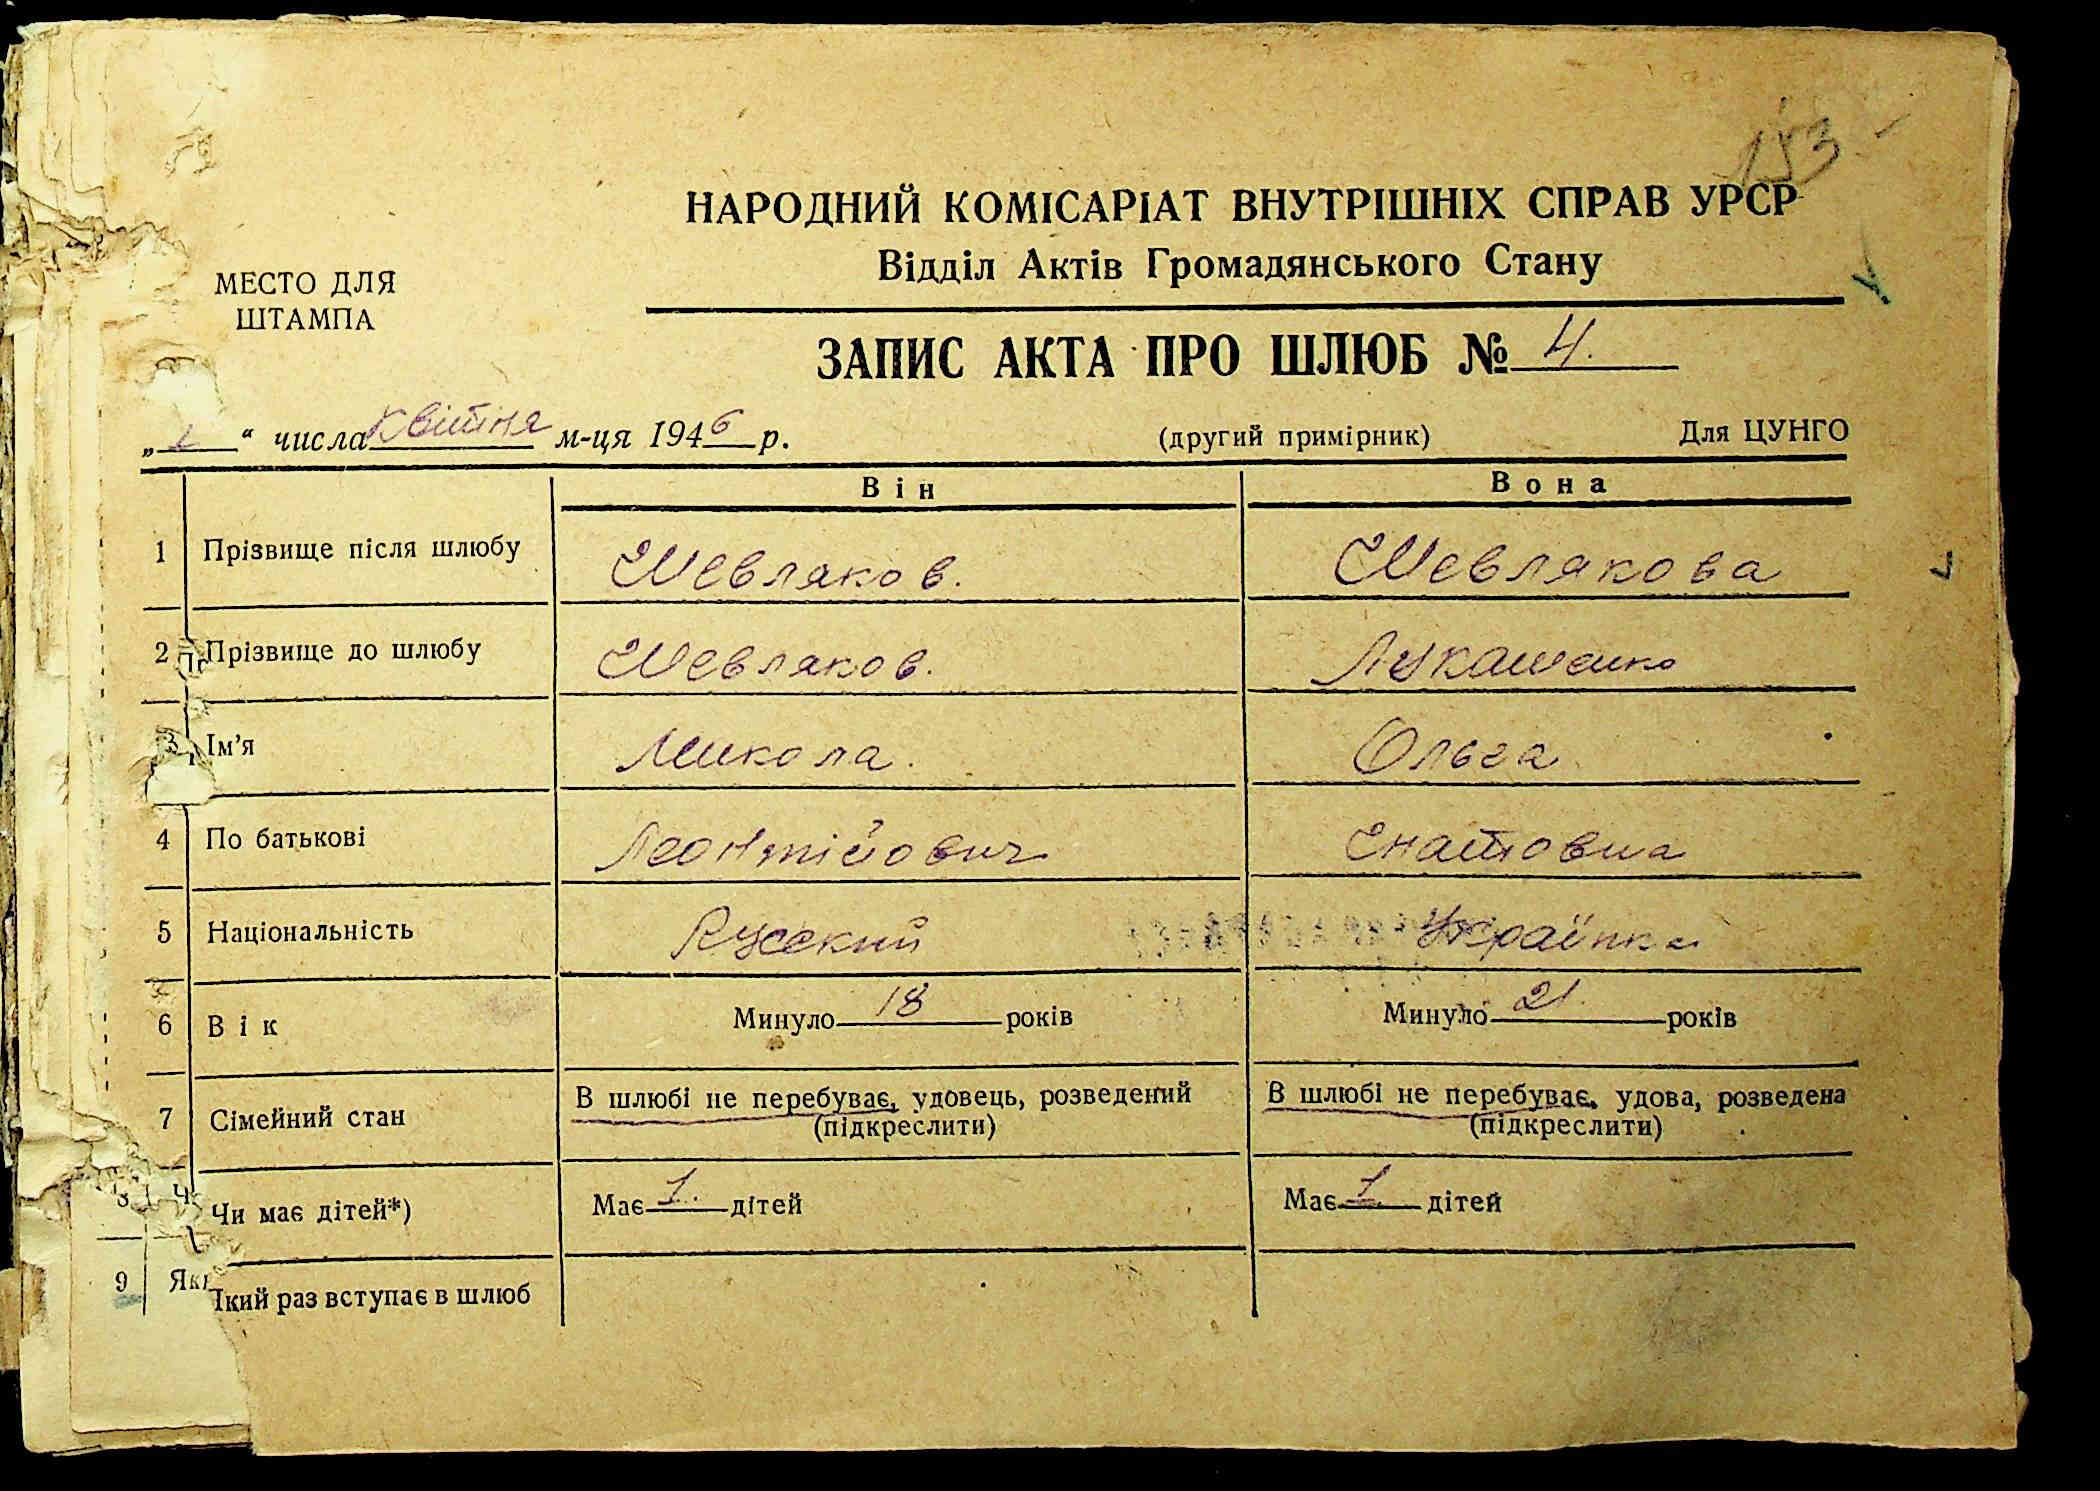 153
НАРОДНИЙ КОМІСАРІАТ ВНУТРІШНІХ СПРАВ УРСР
Відділ Актів Громадянського Стану
МЕСТО ДЛЯ
ШТАМПА
ЗАПИС АКТА ПРО ШЛЮБ № 4.
„ 1 “ числа квітня м-ця 1946 р. (другий примірник) Для ЦУНГО
Він Вона
1 Прізвище після шлюбу Шевляков. Шевлякова
2 Прізвище до шлюбу Шевляков. Лукашенко
3 Ім'я Микола. Ольга
4 По батькові Леонтійович Гнатовна
5 Національність Русский Українка
6 Вік Минуло 18 років Минуло 21 років
7 Сімейний стан В шлюбі не перебуває, удовець, розведений (підкреслити) В шлюбі не перебуває, удова, розведена (підкреслити)
8 Чи має дітей*) Має 1. дітей Має 1 дітей
9 Який раз вступає в шлюб